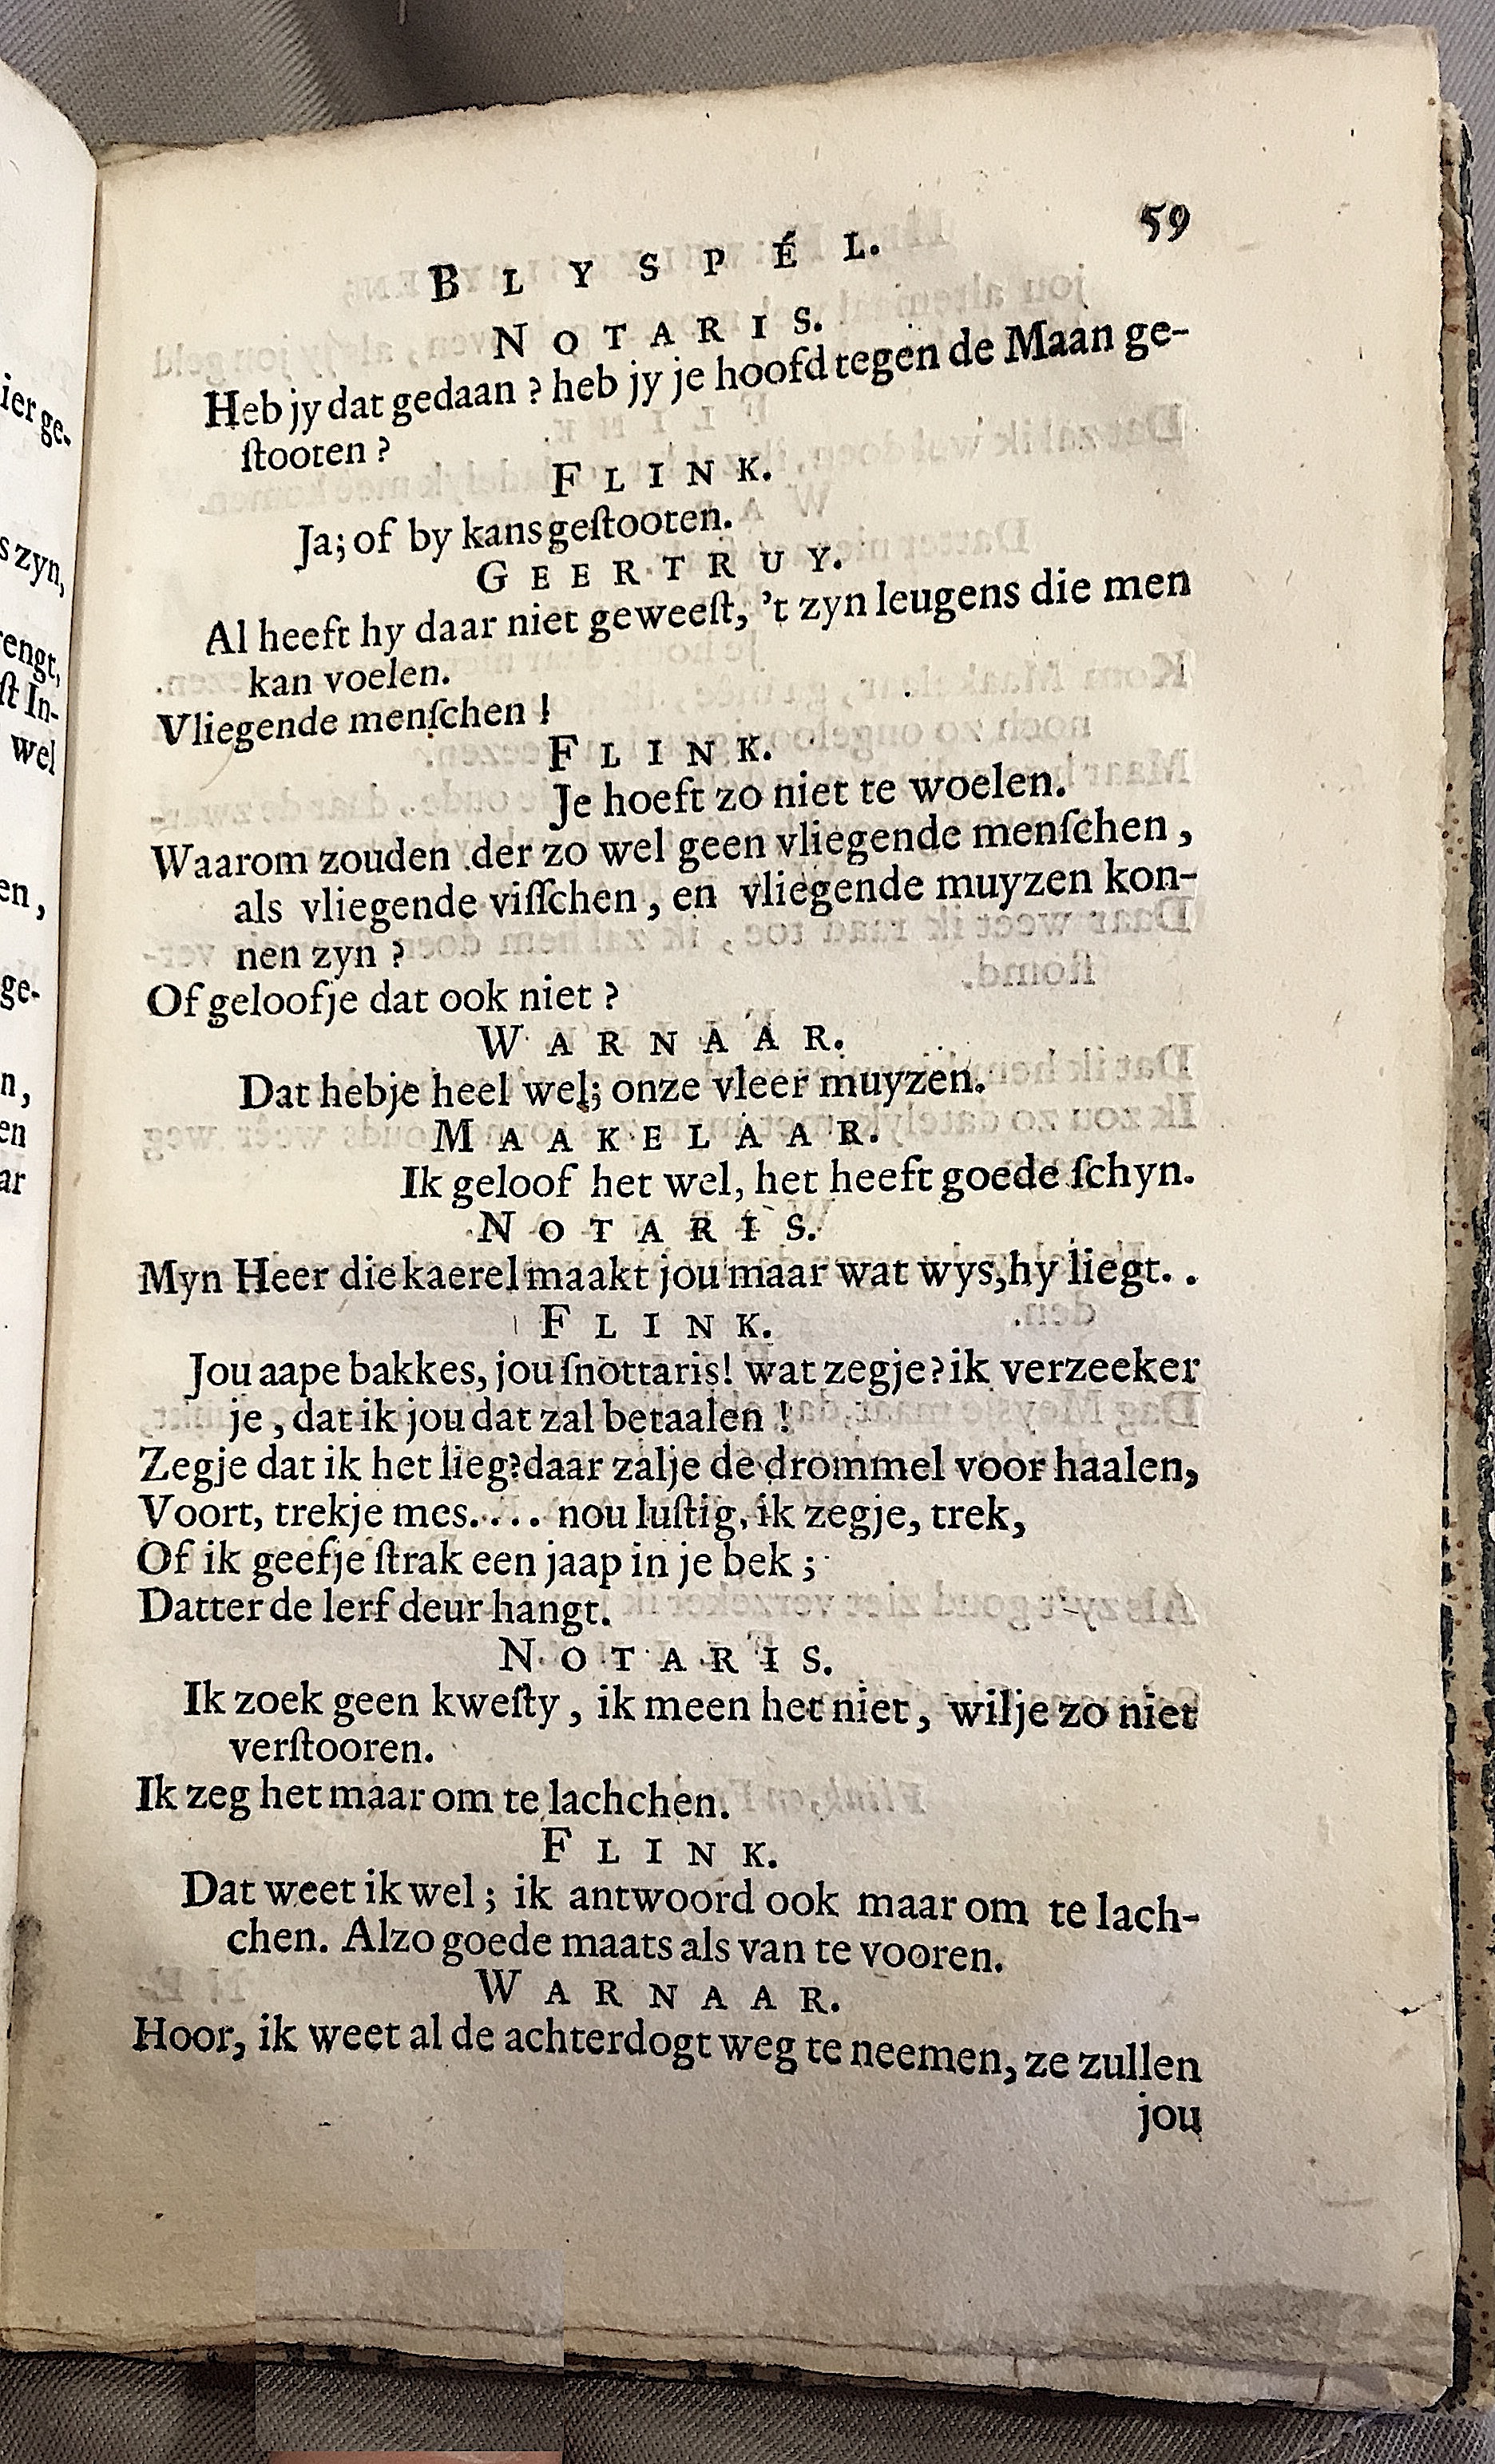 59
BLYSPÉL.
NOTARIS.
Heb jy dat gedaan ? heb jy je hoofd tegen de Maan ge-
ſtooten ?
FLINK.
Ja; of by kans geſtooten.
GEERTRUY.
Al heeft hy daar niet geweeſt, 't zyn leugens die men
kan voelen.
Vliegende menſchen !
FLINK.
Je hoeft zo niet te woelen.
Waarom zouden der zo wel geen vliegende menſchen ,
als vliegende viſſchen , en vliegende muyzen kon-
nen zyn ?
Of geloofje dat ook niet ?
WARNAAR.
Dat hebje heel wel; onze vleer muyzen.
MAAKELAAR.
Ik geloof het wel, het heeft goede ſchyn.
NOTARIS.
Myn Heer die kaerel maakt jou maar wat wys, hy liegt. .
FLINK.
Jou aape bakkes, jou ſnottaris! wat zegje? ik verzeeker
je , dat ik jou dat zal betaalen !
Zegje dat ik het lieg? daar zalje de drommel voor haalen,
Voort, trekje mes. ... nou luſtig, ik zegje, trek,
Of ik geefje ſtrak een jaap in je bek ;
Datter de lerf deur hangt.
NOTARIS.
Ik zoek geen kweſty , ik meen het niet , wilje zo niet
verſtooren.
Ik zeg het maar om te lachchen.
FLINK.
Dat weet ik wel ; ik antwoord ook maar om te lach-
chen. Alzo goede maats als van te vooren.
WARNAAR.
Hoor, ik weet al de achterdogt weg te neemen, ze zullen
jou
ier ge-
s zyn,
rengt,
ſt In-
wel
en ,
ge-
n ,
en
ar